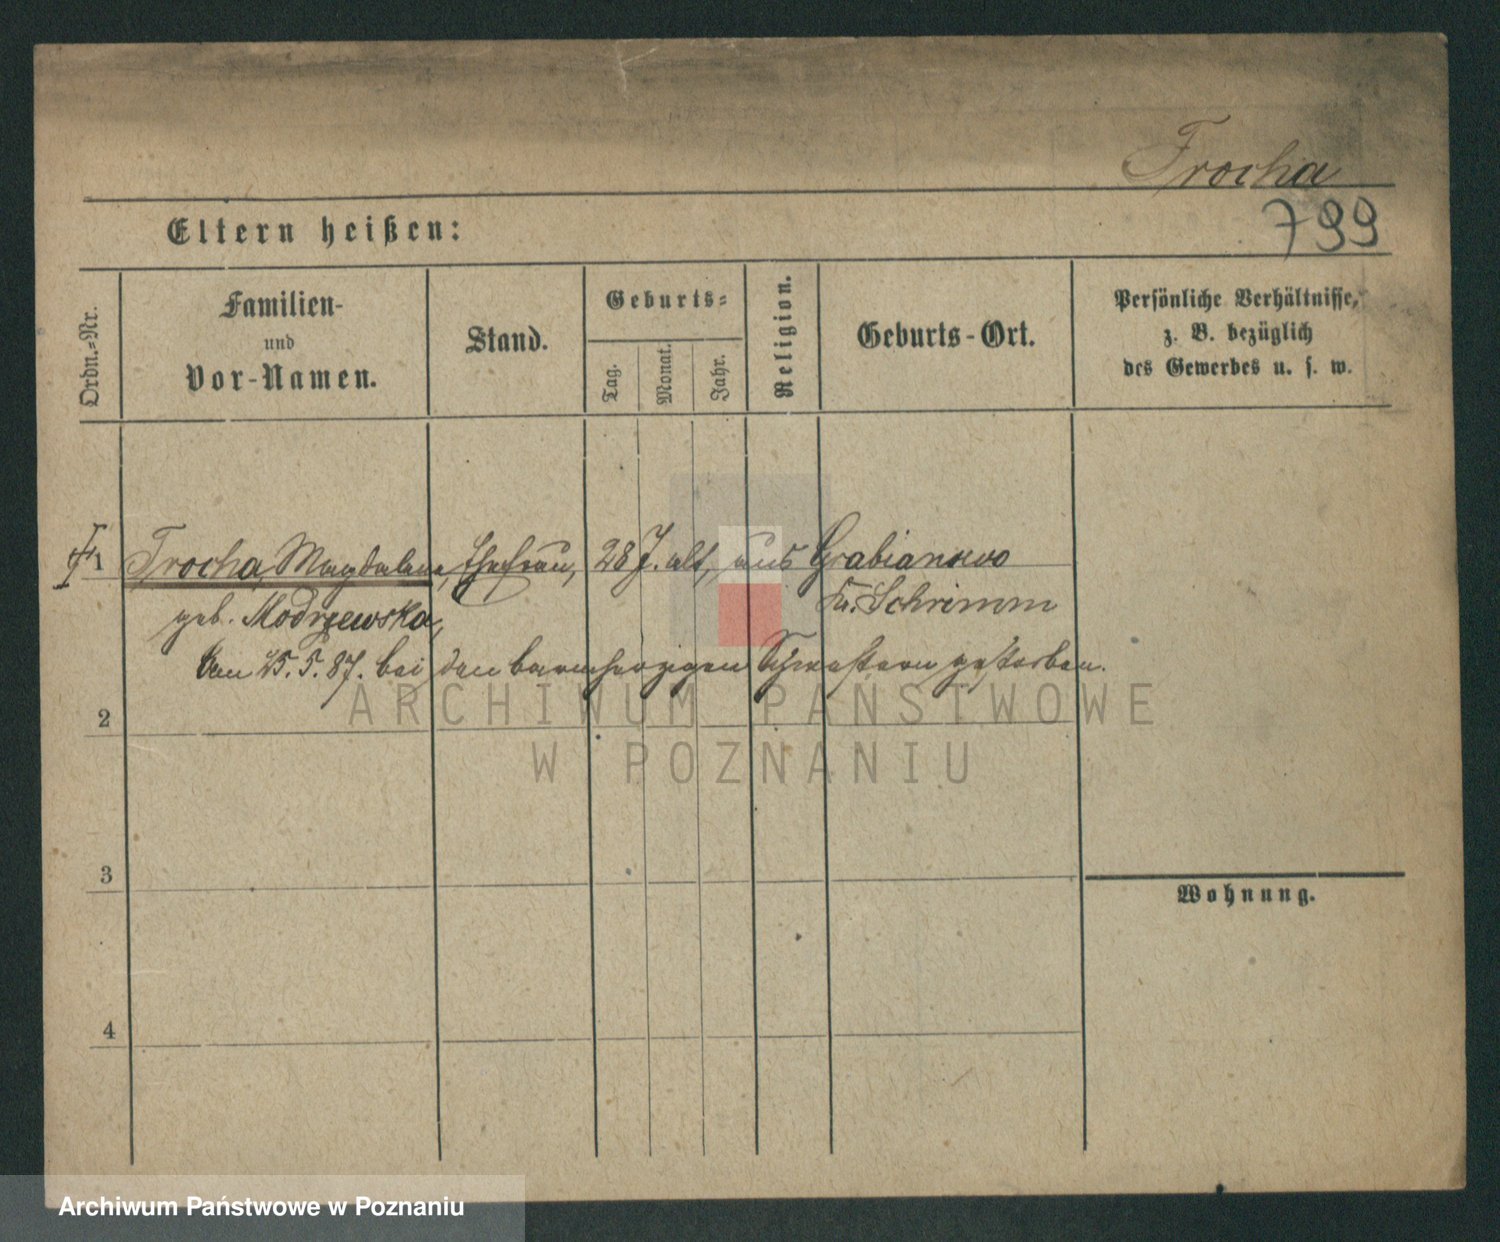 Trocha
799
Eltern heißen:
Ordn.-Nr.
Familien-
und
Vor-Namen.
Stand.
Geburts-
Tag.
Monat.
Jahr.
Religion.
Geburts-Ort.
Persönliche Verhältnisse,
z. B. bezüglich
des Gewerbes u. s. w.
1 Trocha, Magdalena, Ehefrau, 28 J. alt, aus Grabianowo
geb. Modrzewska, Kr. Schrimm
Am 25. 5. 87. bei den barmherzigen Schwestern gestorben.
2
3
Wohnung.
4
ARCHIWUM PAŃSTWOWE
W POZNANIU
Archiwum Państwowe w Poznaniu